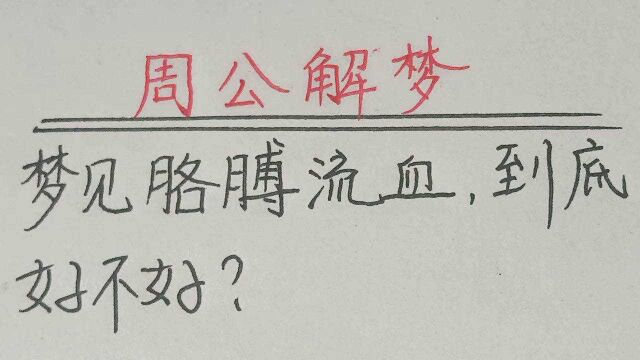 周公解梦
梦见胳膊流血,到底
好不好?